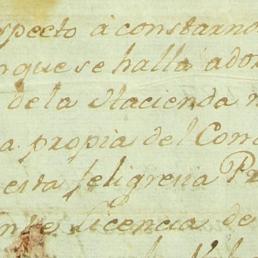 specto à constarno
nque se halla ado
de la Hacienda n
a propia del Con
esta feligresia Pr
licencia de